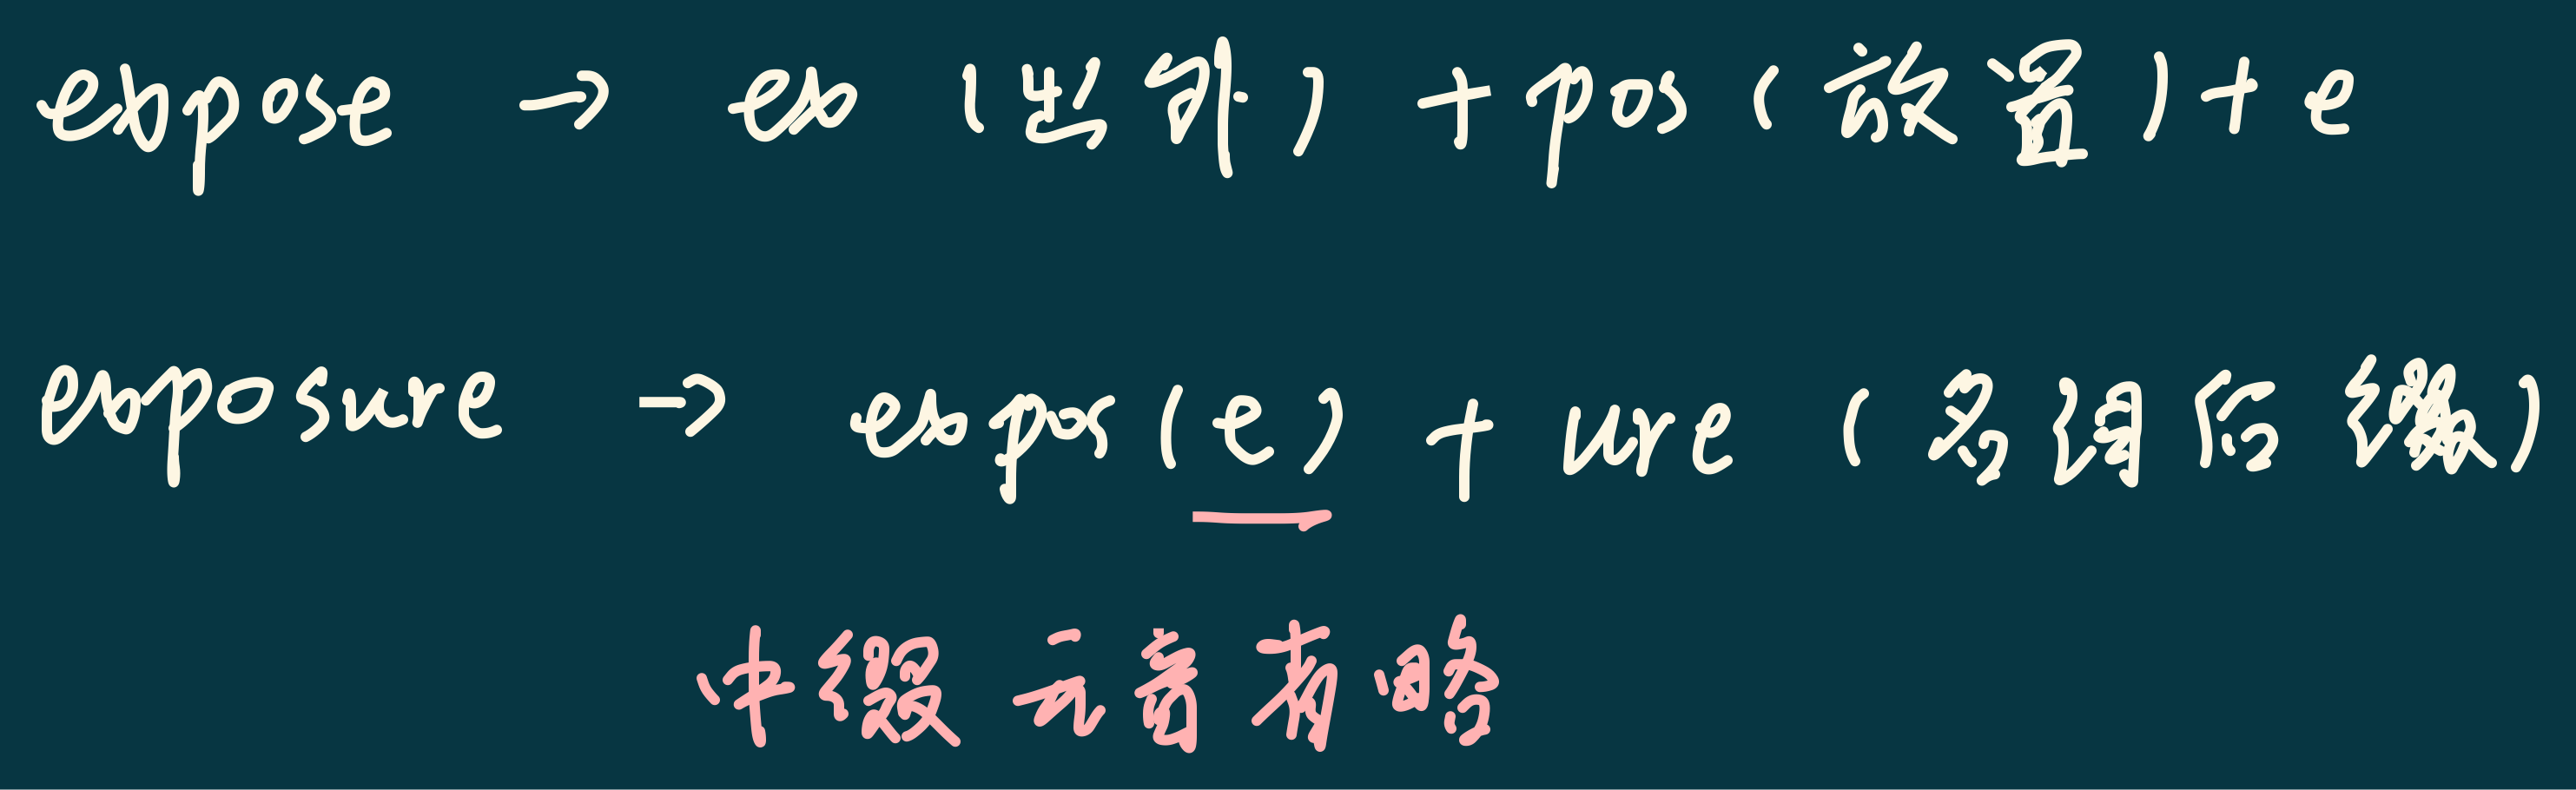 expose → ex (出外) + pos (放置) + e
exposure → expos(e) + ure (名词后缀)
中缀 元音省略